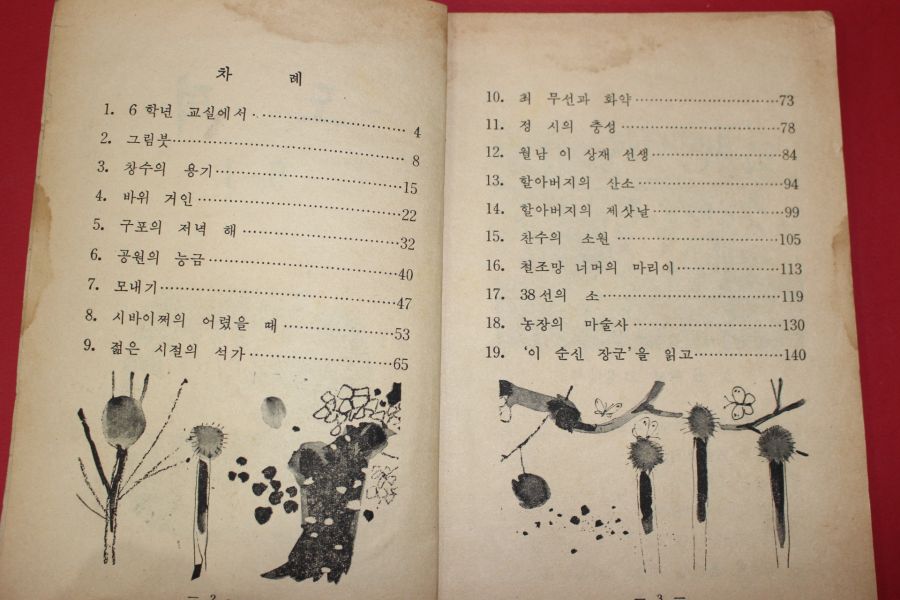 차 례
1. 6 학년 교실에서 4
2. 그림붓 8
3. 창수의 용기 15
4. 바위 거인 22
5. 구포의 저녁 해 32
6. 공원의 능금 40
7. 모내기 47
8. 시바이쩌의 어렸을 때 53
9. 젊은 시절의 석가 65
— 2 —
10. 최 무선과 화약 73
11. 정 시의 충성 78
12. 월남 이 상재 선생 84
13. 할아버지의 산소 94
14. 할아버지의 제삿날 99
15. 찬수의 소원 105
16. 철조망 너머의 마리이 113
17. 38 선의 소 119
18. 농장의 마술사 130
19. ‘이 순신 장군’을 읽고 140
— 3 —